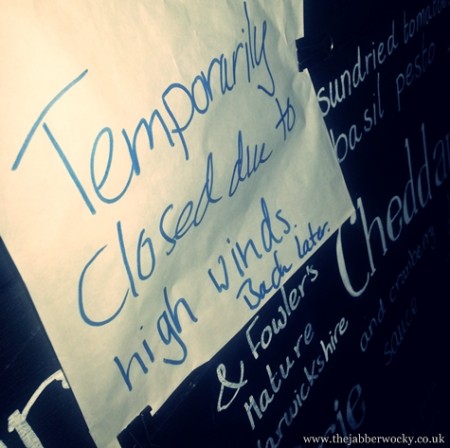 Temporarily
closed due to
high winds.
Back later.
sundried tomatoes
basil pesto
Cheddar
& Fowler's
Mature
Warwickshire
and cranberry
sauce
www.thejabberwocky.co.uk